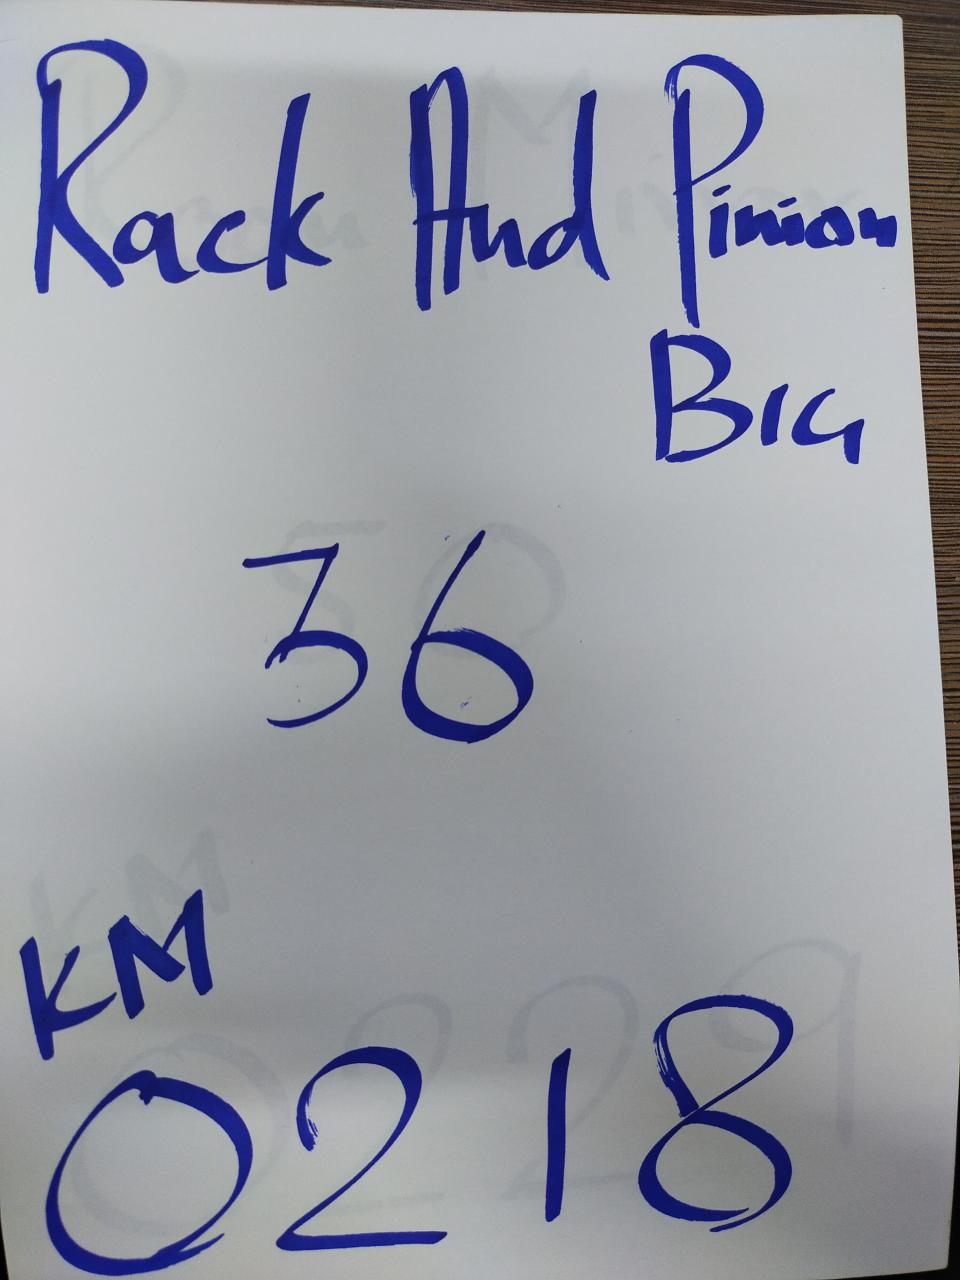 Rack And Pinion
BIG
36
KM
0218